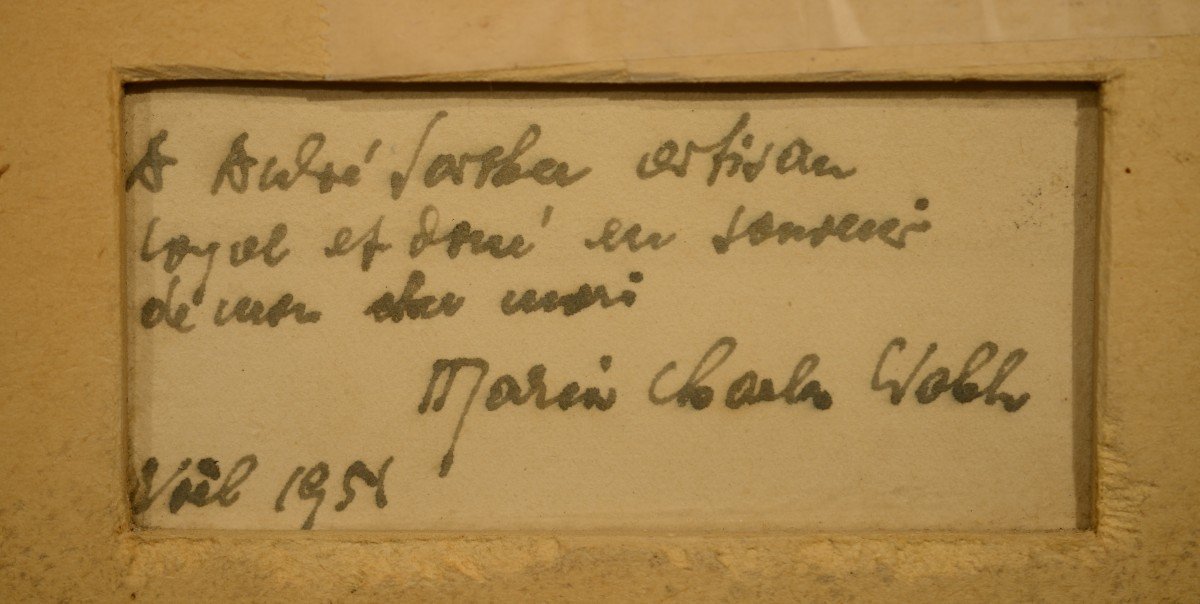 A André artisan
loyal et doué en souvenir
de mon cher mari
Maria Charles Walch
Noël 195